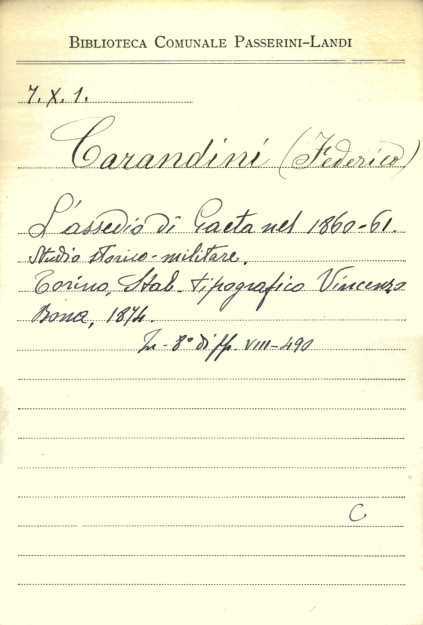 BIBLIOTECA COMUNALE PASSERINI-LANDI
7. X. 1.
Carandini (Federico)
L'assedio di Gaeta nel 1860-61.
Studio storico-militare.
Torino, Stab. tipografico Vincenzo
Bona, 1874.
In-8° di pp. VIII-490
C